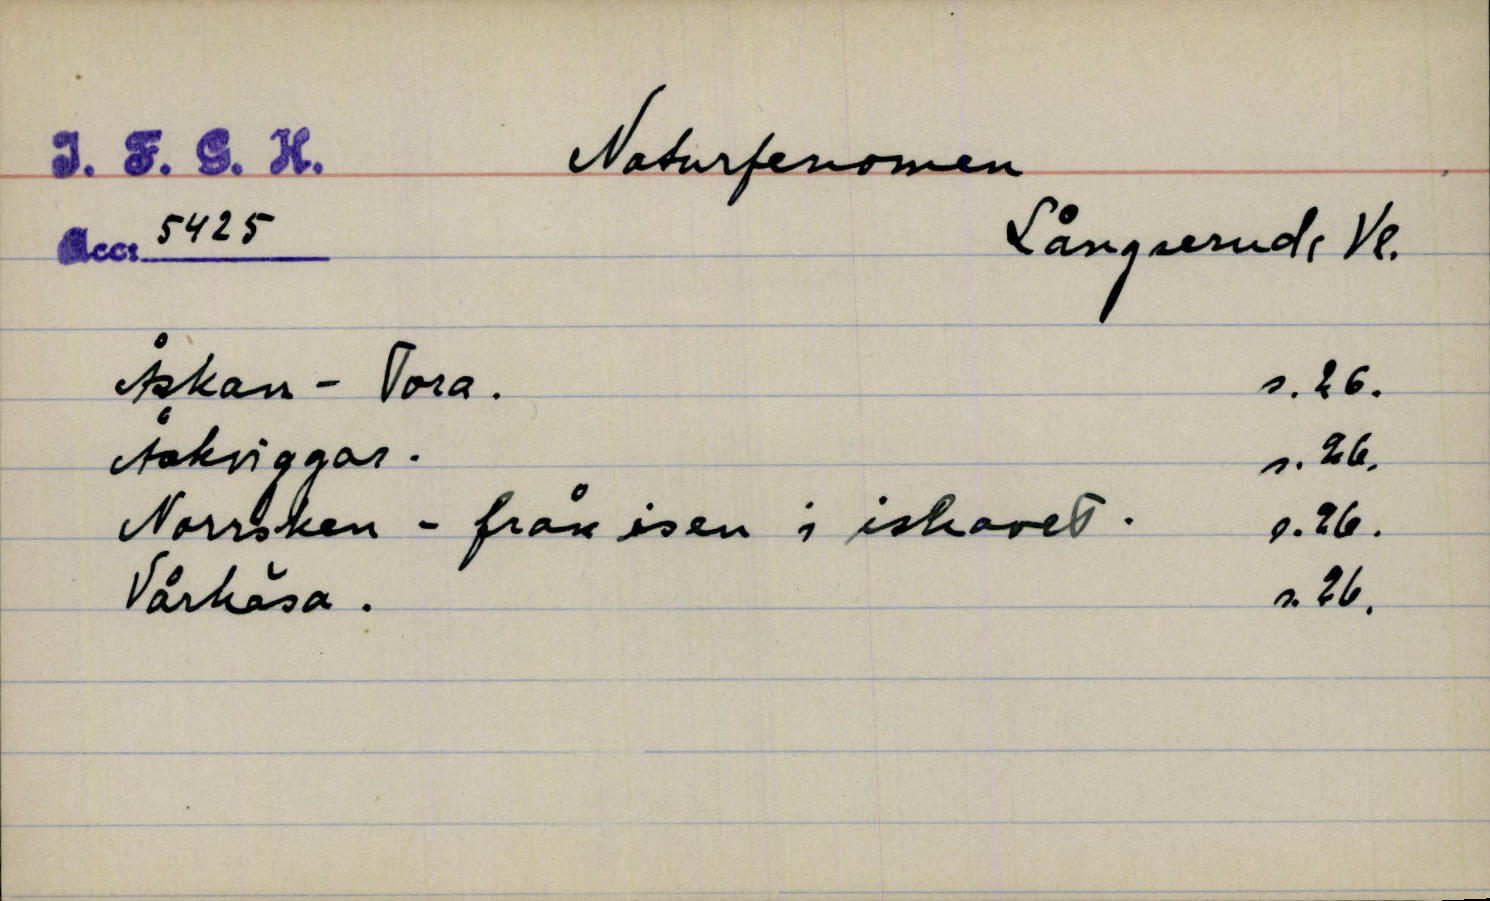 I. F. G. H.
Naturfenomen
Acc: 5425
Långseruds Vl.
Åskan - Tora. s. 26.
Åskviggar. s. 26.
Norrsken - från isen i ishavet. s. 26.
Vårkåsa. s. 26.